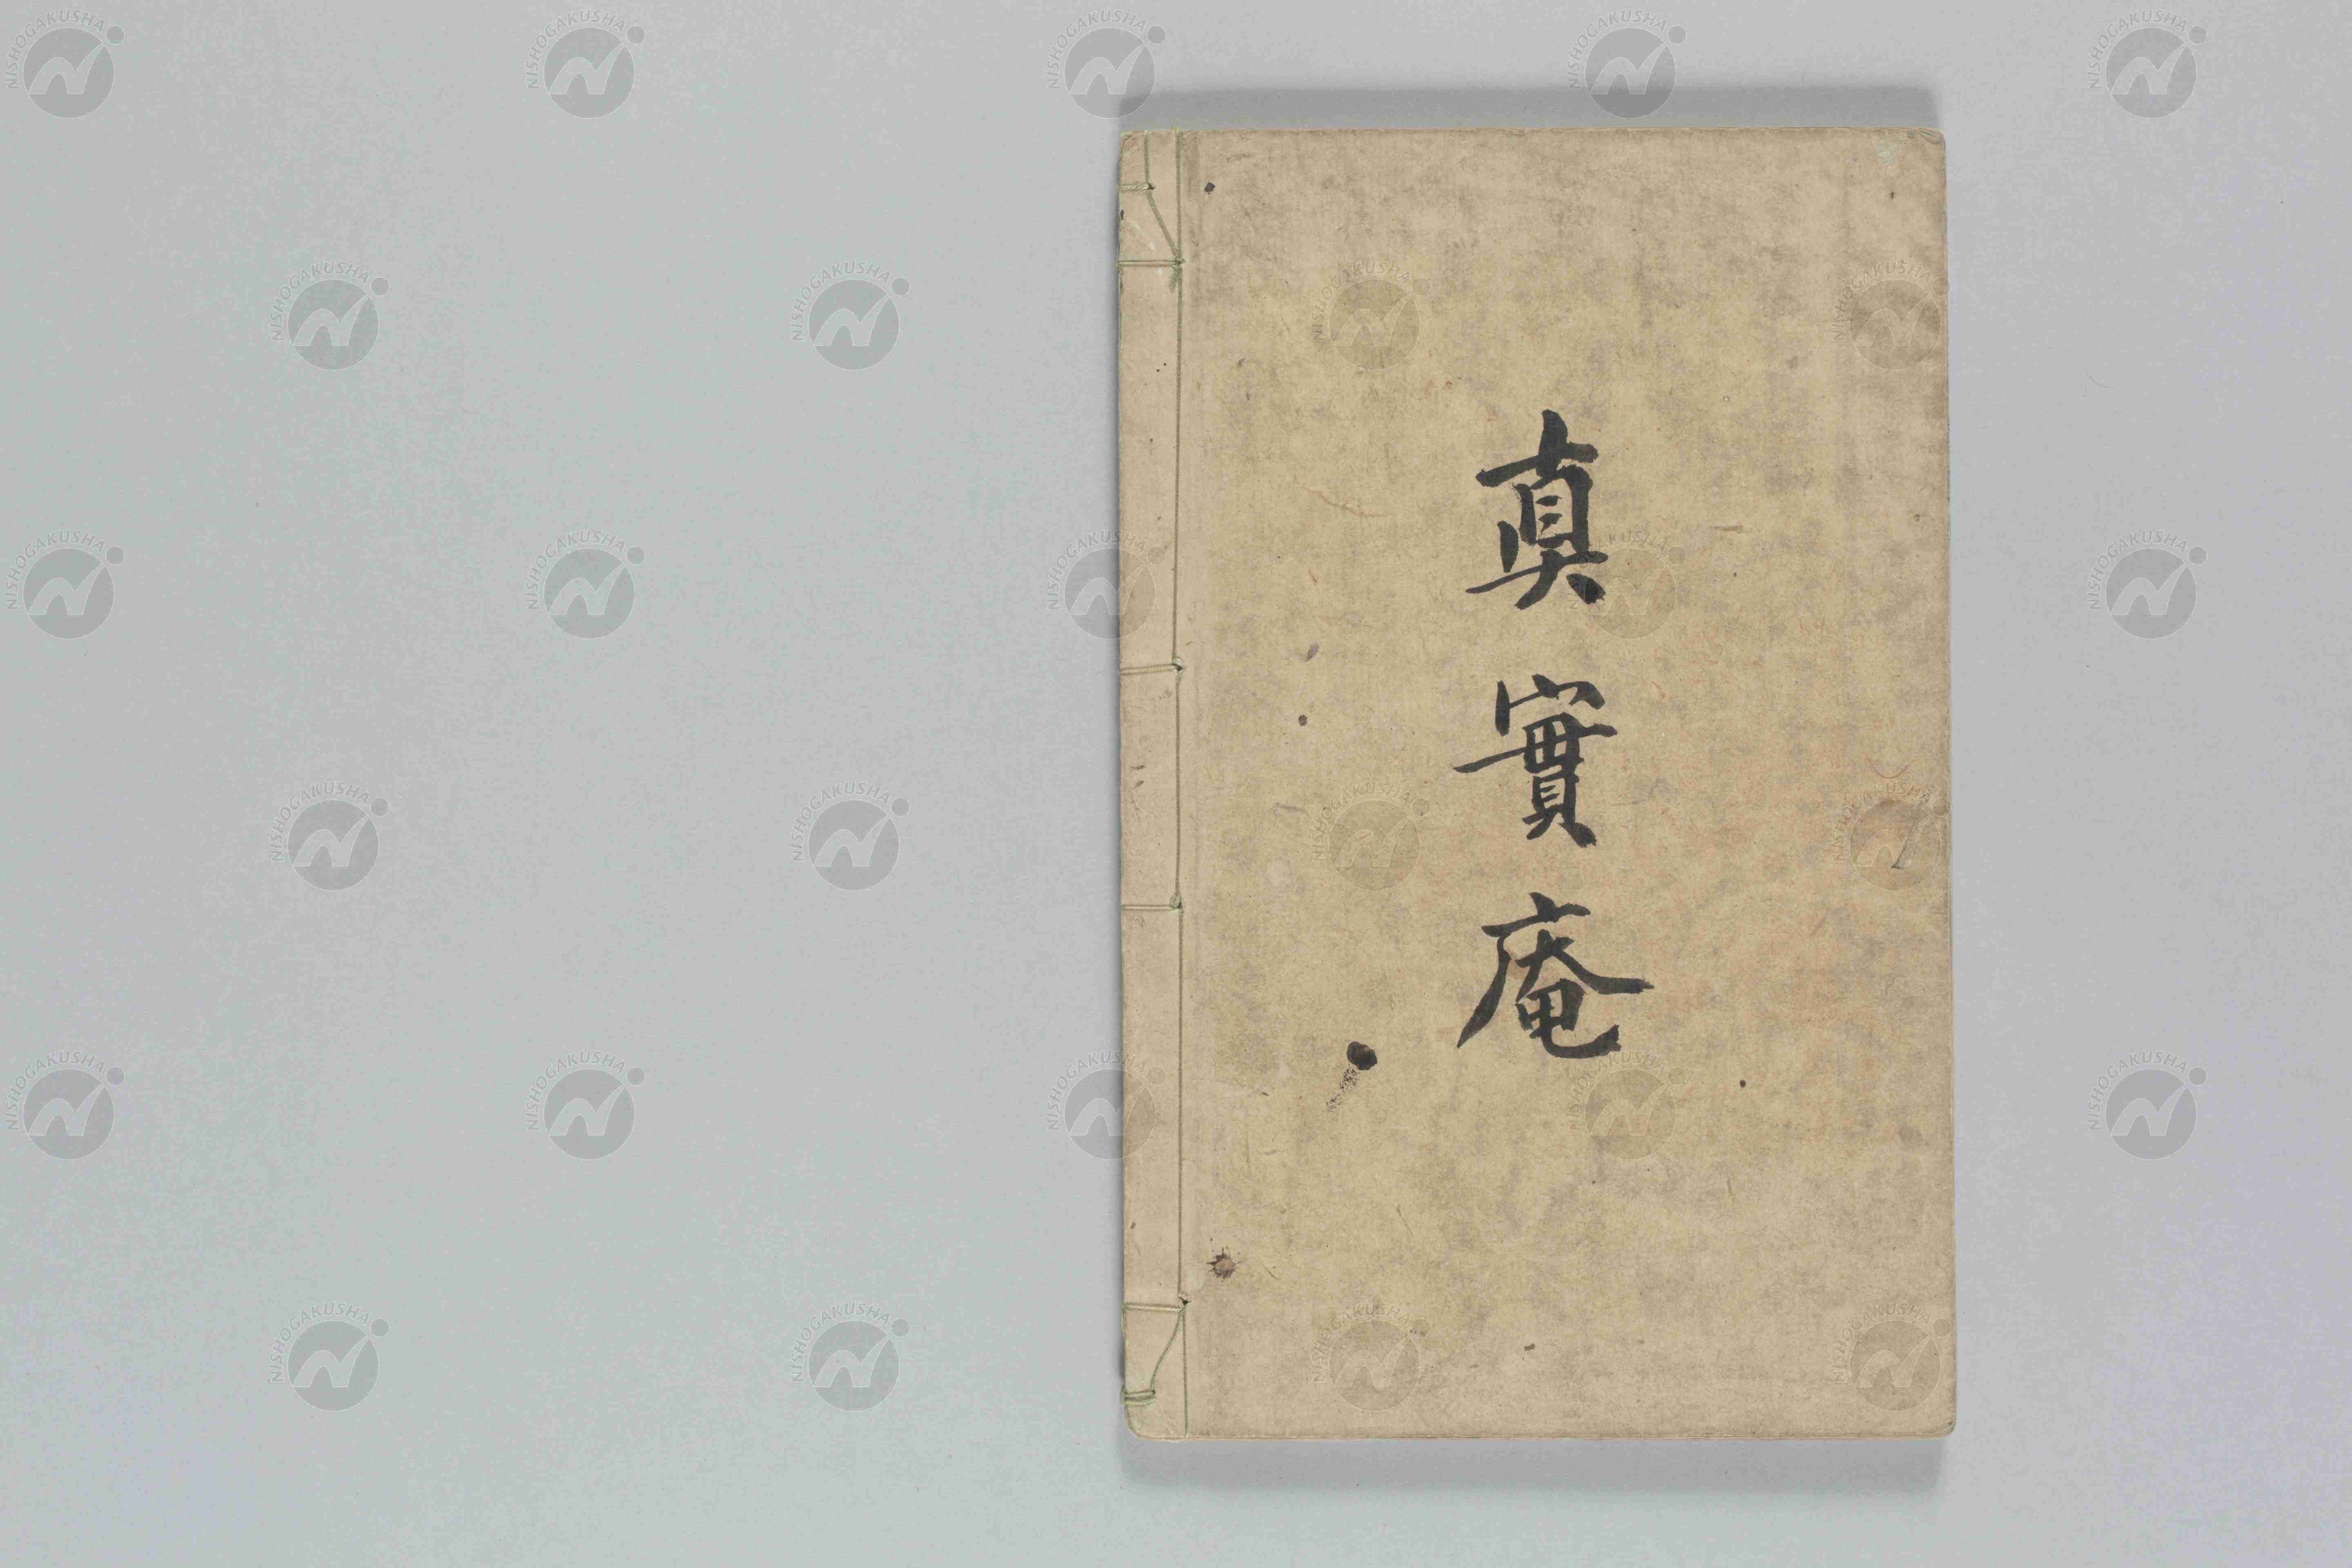 真實庵
NISHOGAKUSHA